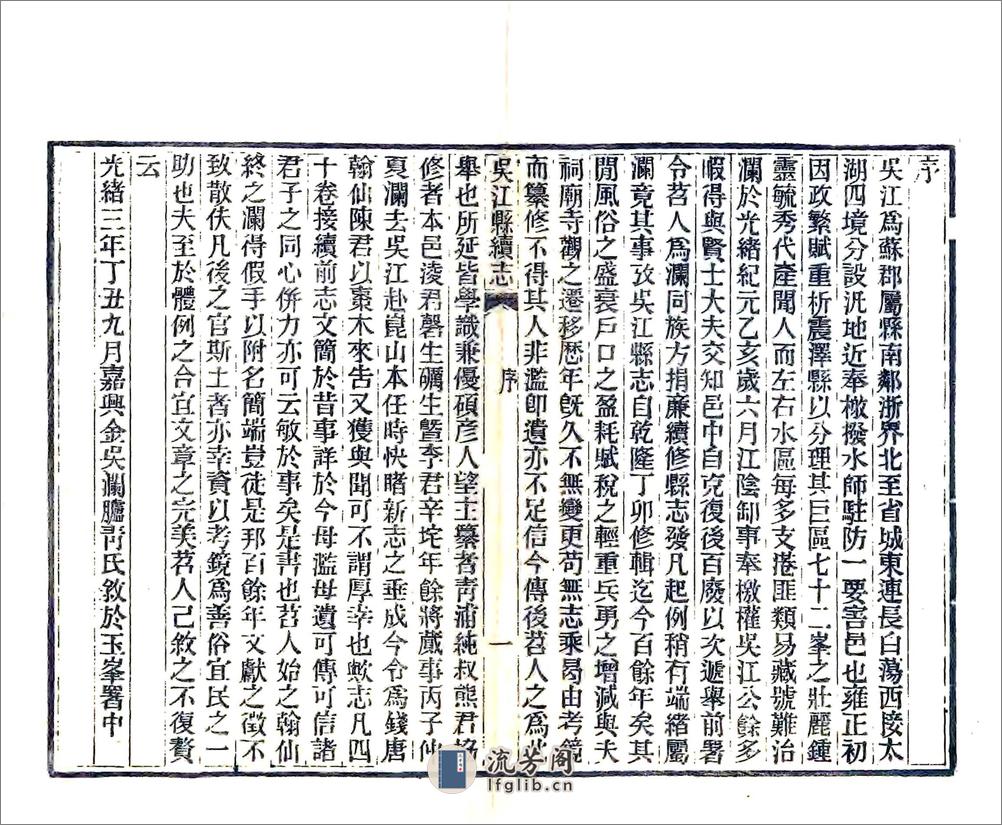 序
吳江爲蘇郡屬縣南鄰浙界北至省城東連長白蕩西接太
湖四境分設汛地近奉檄撥水師駐防一要害邑也雍正初
因政繁賦重析震澤縣以分理其巨區七十二峯之壯麗鍾
靈毓秀代產聞人而左右水區每多支港匪類易藏號難治
瀾於光緒紀元乙亥歲六月江陰卸事奉檄權吳江公餘多
暇得與賢士大夫交知邑中自克復後百廢以次遞舉前署
令苕人爲瀾同族方捐廉續修縣志發凡起例稍有端緒屬
瀾竟其事攷吳江縣志自乾隆丁卯修輯迄今百餘年矣其
閒風俗之盛衰戶口之盈耗賦稅之輕重兵勇之增減與夫
祠廟寺觀之遷移歷年旣久不無變更苟無志乘曷由考鏡
而纂修不得其人非濫卽遺亦不足信今傳後苕人之爲此
吳江縣續志 序 一
舉也所延皆學識兼優碩彥人望主纂者靑浦純叔熊君協
修者本邑淩君磬生礪生曁李君辛垞年餘將蕆事丙子仲
夏瀾去吳江赴崑山本任時快睹新志之垂成今令爲錢唐
翰仙陳君以棗木來告又獲與聞可不謂厚幸也歟志凡四
十卷接續前志文簡於昔事詳於今毋濫毋遺可傳可信諸
君子之同心併力亦可云敏於事矣是書也苕人始之翰仙
終之瀾得假手以附名簡端豈徒是邦百餘年文獻之徵不
致散佚凡後之官斯土者亦幸資以考鏡爲善俗宜民之一
助也夫至於體例之合宜文章之完美苕人已敘之不復贅
云
光緒三年丁丑九月嘉興金吳瀾臚靑氏敘於玉峯署中
流芳阁
lfglib.cn